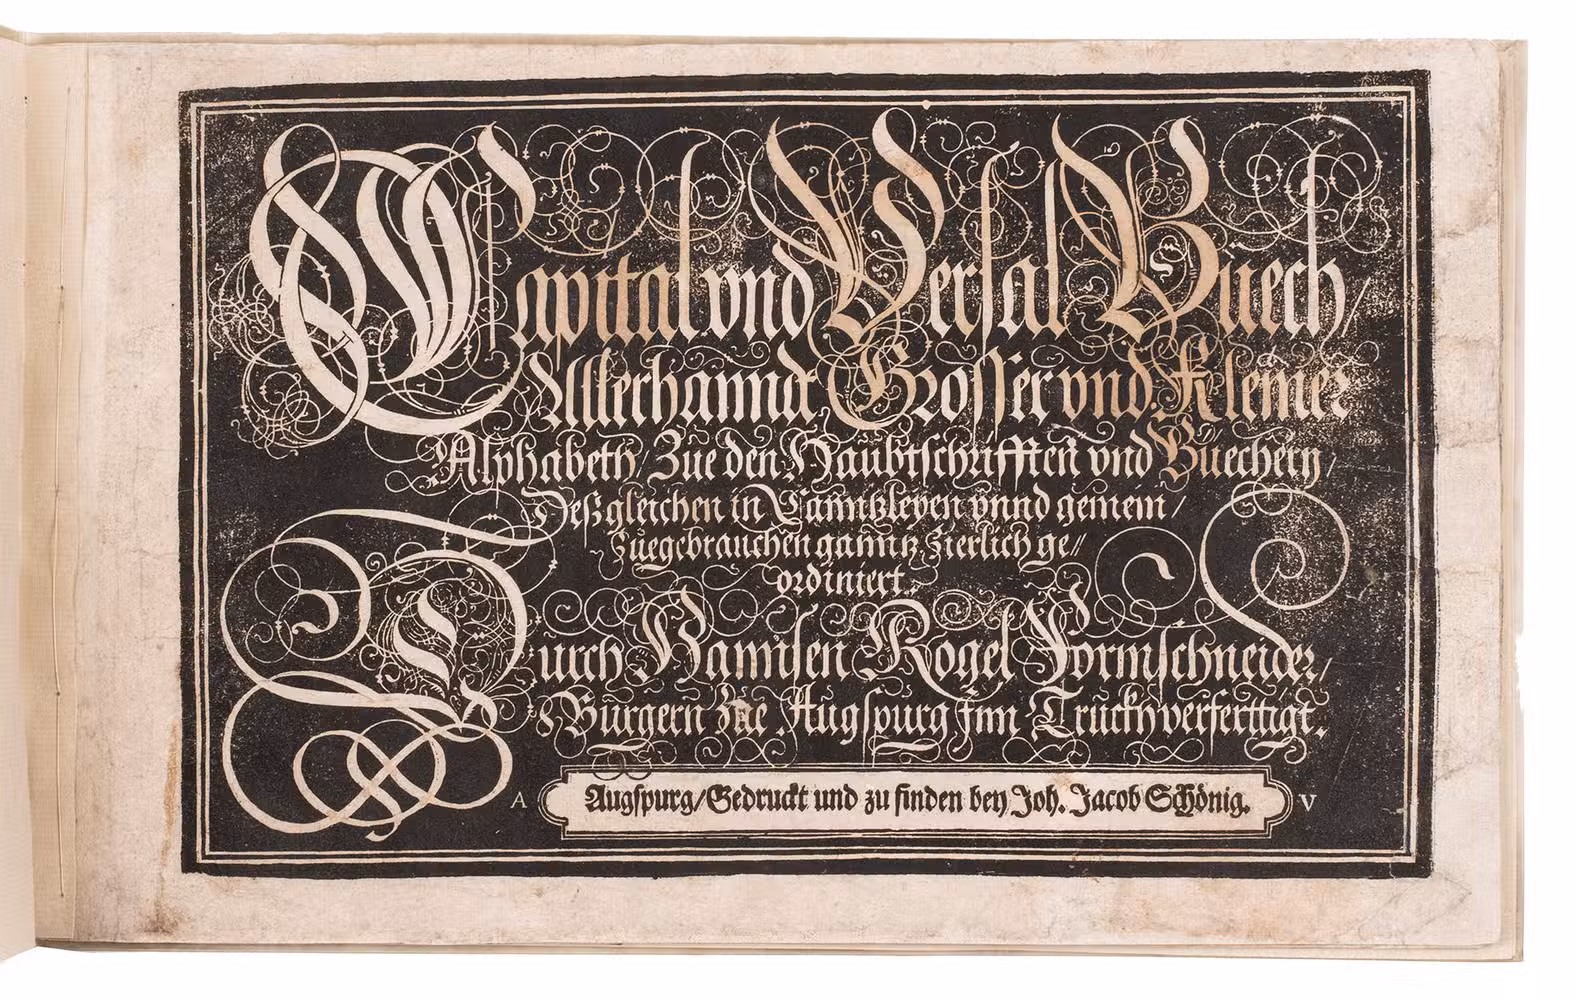 Capital vnd Versal Buech/
Allerhanndt Grosser vnd Kleiner
Alphabeth/ Zue den Haubtschrifften vnd Buechern/
Deßgleichen in Canntzleyen vnnd gemein/
Zuegebrauchen ganntz Zierlich ge⸗
ordiniert.
Durch Hannsen Rogel Formschneider/
Burgern zue Augspurg Inn Truckh verferttigt.
A V
Augspurg/ Gedruckt und zu finden bey Joh. Jacob Schönig.